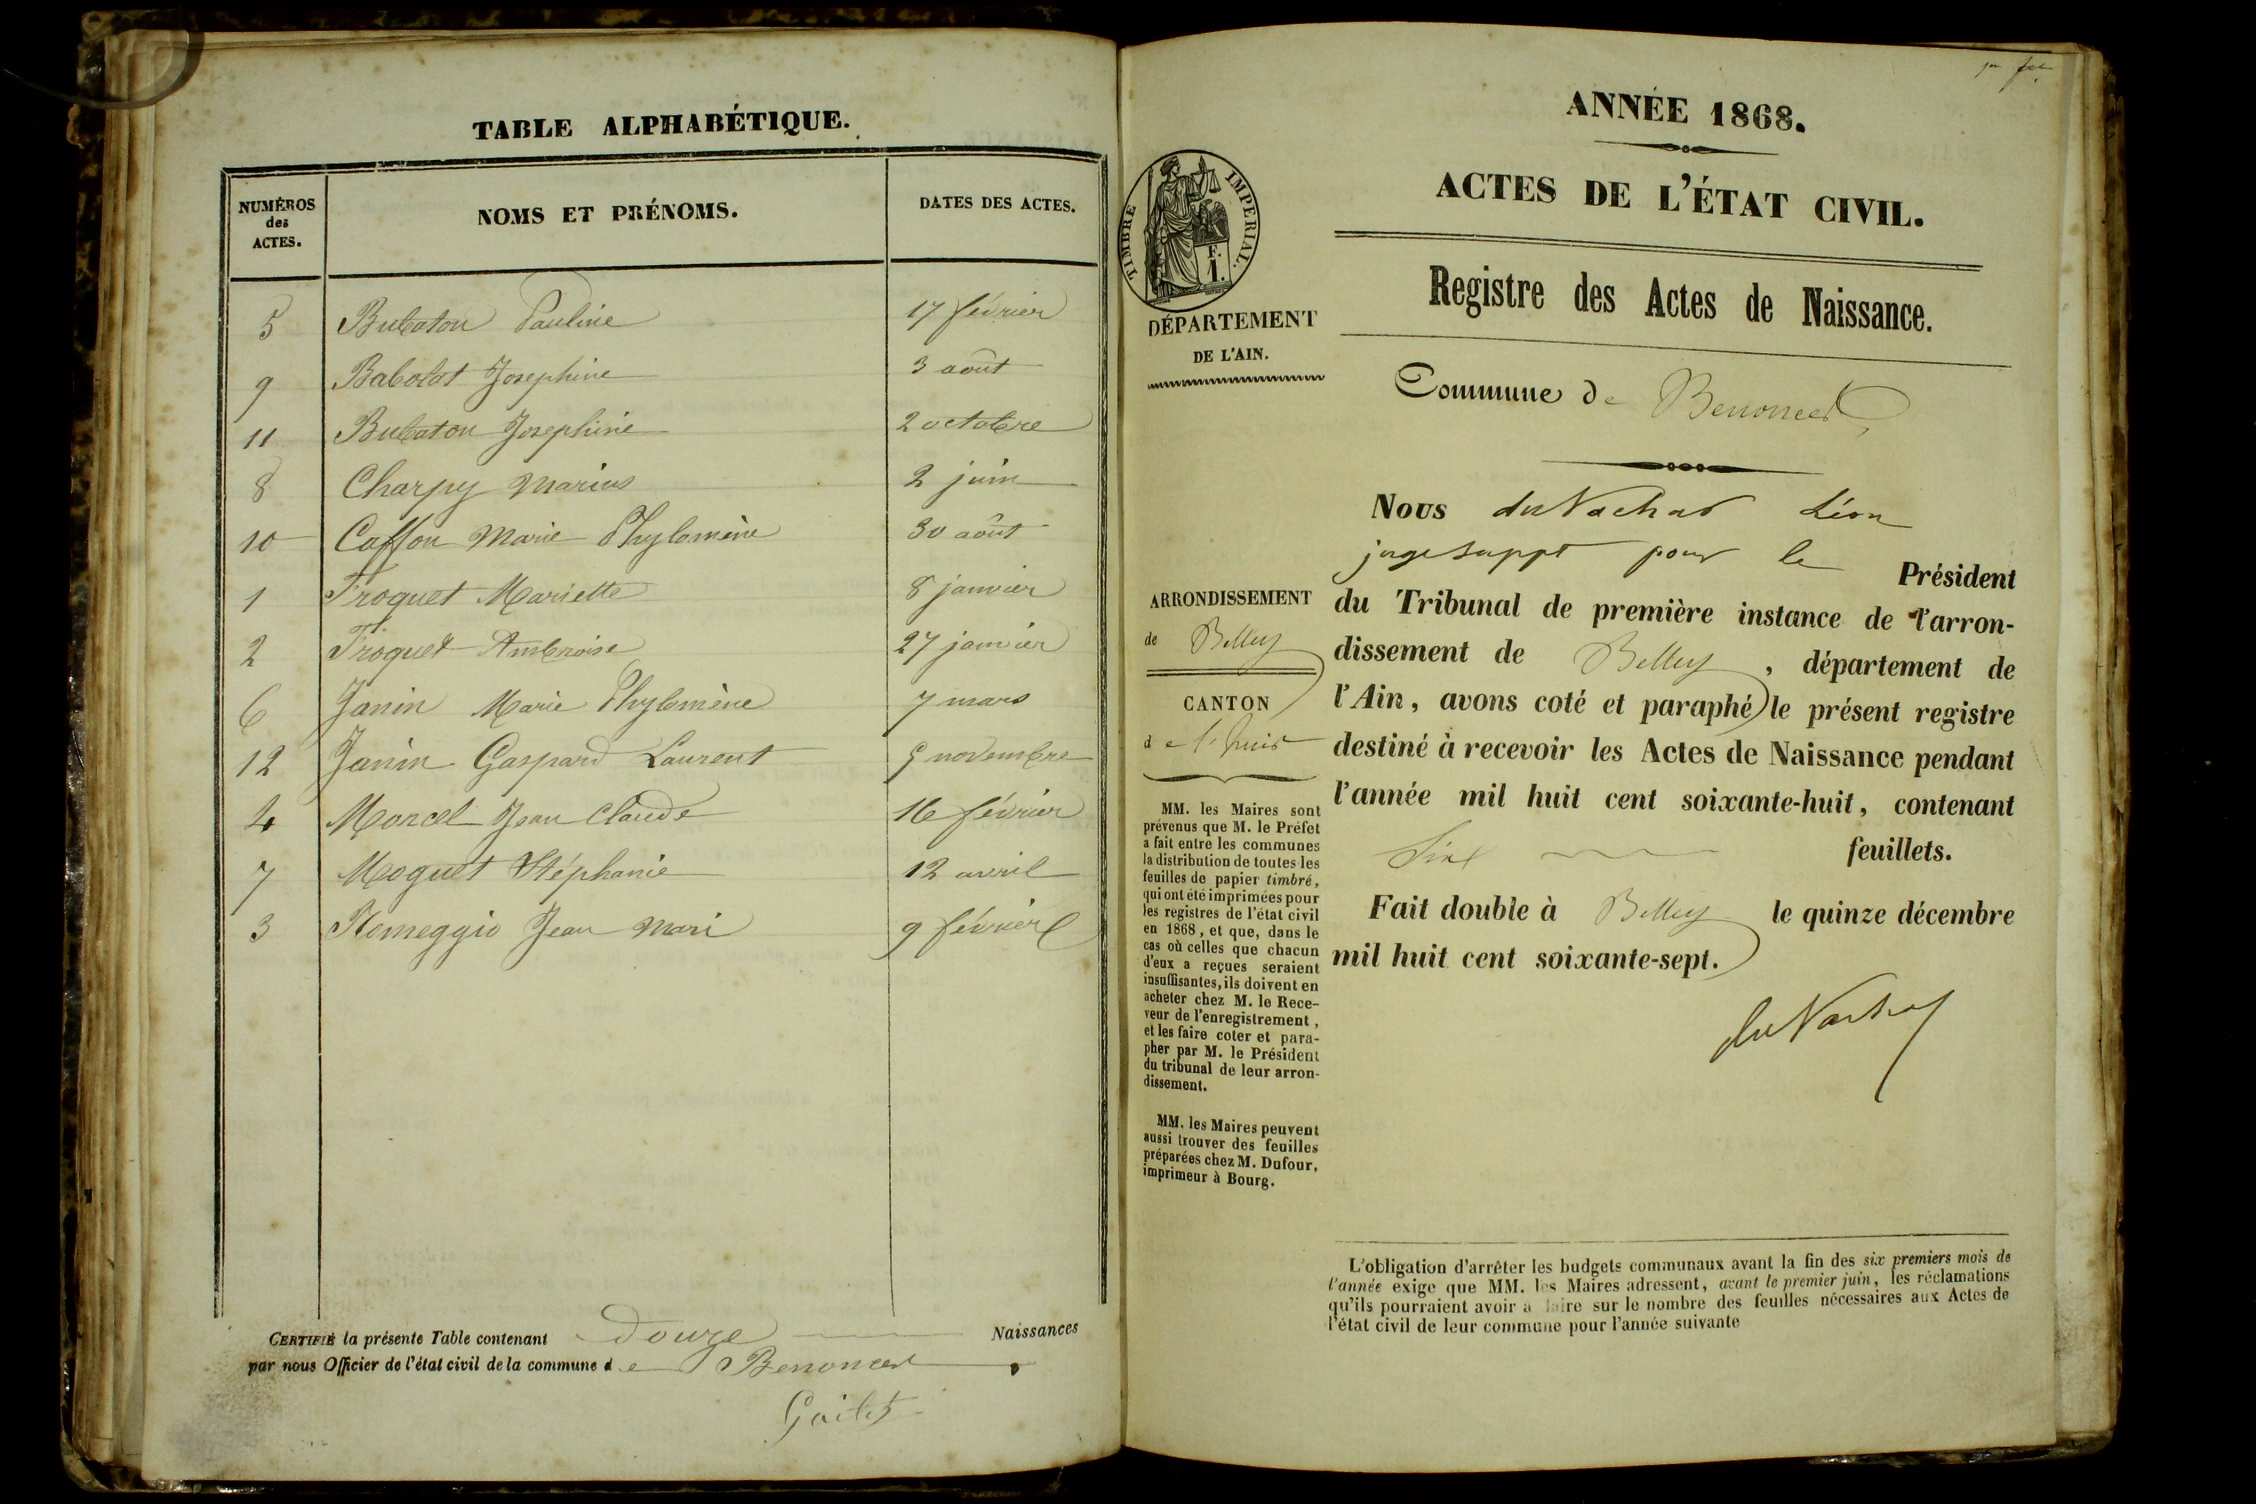 TABLE ALPHABÉTIQUE.
NUMÉROS des ACTES.
NOMS ET PRÉNOMS.
DATES DES ACTES.
5 Bubaton Pauline 17 février
9 Babolat Josephine 3 août
11 Bubaton Josephine 2 octobre
8 Charpy Marius 2 juin
10 Caffon Marie Phylomène 30 août
1 Froquet Mariette 8 janvier
2 Froquet Ambroise 27 janvier
6 Janin Marie Phylomène 7 mars
12 Janin Gaspard Laurent 5 novembre
4 Morcel Jean Claude 16 février
7 Moguet Stéphanie 12 avril
3 Romeggio Jean Mari 9 février
CERTIFIÉ la présente Table contenant douze Naissances
par nous Officier de l'état civil de la commune de Benonces.
ANNÉE 1868.
ACTES DE L'ÉTAT CIVIL.
Registre des Actes de Naissance.
TIMBRE IMPERIAL.
F. 1.
DÉPARTEMENT
DE L'AIN.
Commune de Benonces
Nous du Nachat Léon
juge suppt pour le Président
du Tribunal de première instance de l'arron-
dissement de Belley, département de
l'Ain, avons coté et paraphé le présent registre
destiné à recevoir les Actes de Naissance pendant
l'année mil huit cent soixante-huit, contenant
Six feuillets.
Fait double à Belley le quinze décembre
mil huit cent soixante-sept.
ARRONDISSEMENT
de Belley
CANTON
de l'huis
MM. les Maires sont
prévenus que M. le Préfet
a fait entre les communes
la distribution de toutes les
feuilles de papier timbré,
qui ont été imprimées pour
les registres de l'état civil
en 1868, et que, dans le
cas où celles que chacun
d'eux a reçues seraient
insuffisantes, ils doivent en
acheter chez M. le Rece-
veur de l'enregistrement,
et les faire coter et para-
pher par M. le Président
du tribunal de leur arron-
dissement.
MM. les Maires peuvent
aussi trouver des feuilles
préparées chez M. Dufour,
imprimeur à Bourg.
L'obligation d'arrêter les budgets communaux avant la fin des six premiers mois de
l'année exige que MM. les Maires adressent, avant le premier juin, les réclamations
qu'ils pourraient avoir à faire sur le nombre des feuilles nécessaires aux Actes de
l'état civil de leur commune pour l'année suivante